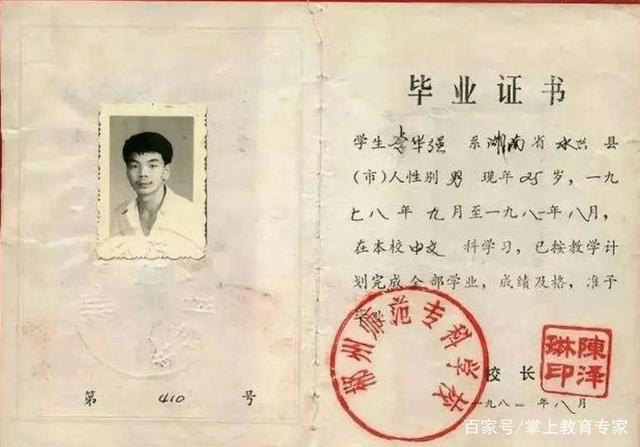 毕业证书
学生李华强 系湖南省永兴县
(市)人性别 男 现年25岁,一九
七八年九月至一九八一年八月,
在本校中文 科学习,已按教学计
划完成全部学业,成绩及格,准予
校长
陳泽琳印
郴州师范专科学校
一九八一年八月
第 410 号
百家号/掌上教育专家